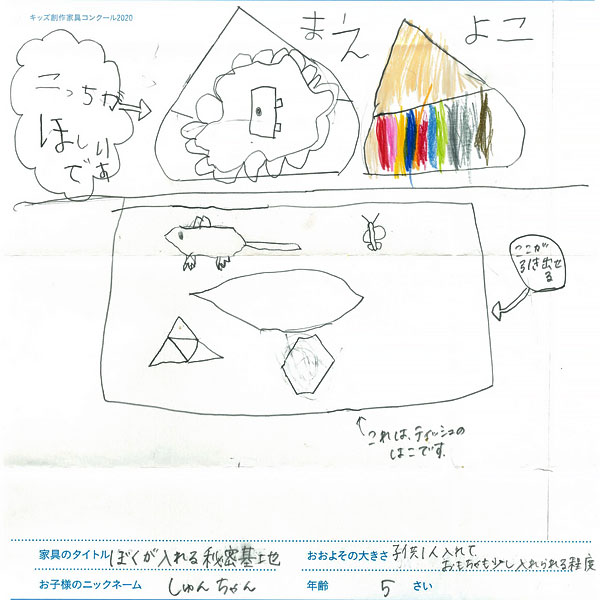 キッズ創作家具コンクール2020
まえ
よこ
こっちが
ほしい
です
ここが
引き出せ
る
これは、ティッシュの
はこです。
家具のタイトル ぼくが入れる秘密基地
おおよその大きさ 子供1人入れて、
おもちゃも少し入れられる程度
お子様のニックネーム しゅんちゃん
年齢 5 さい